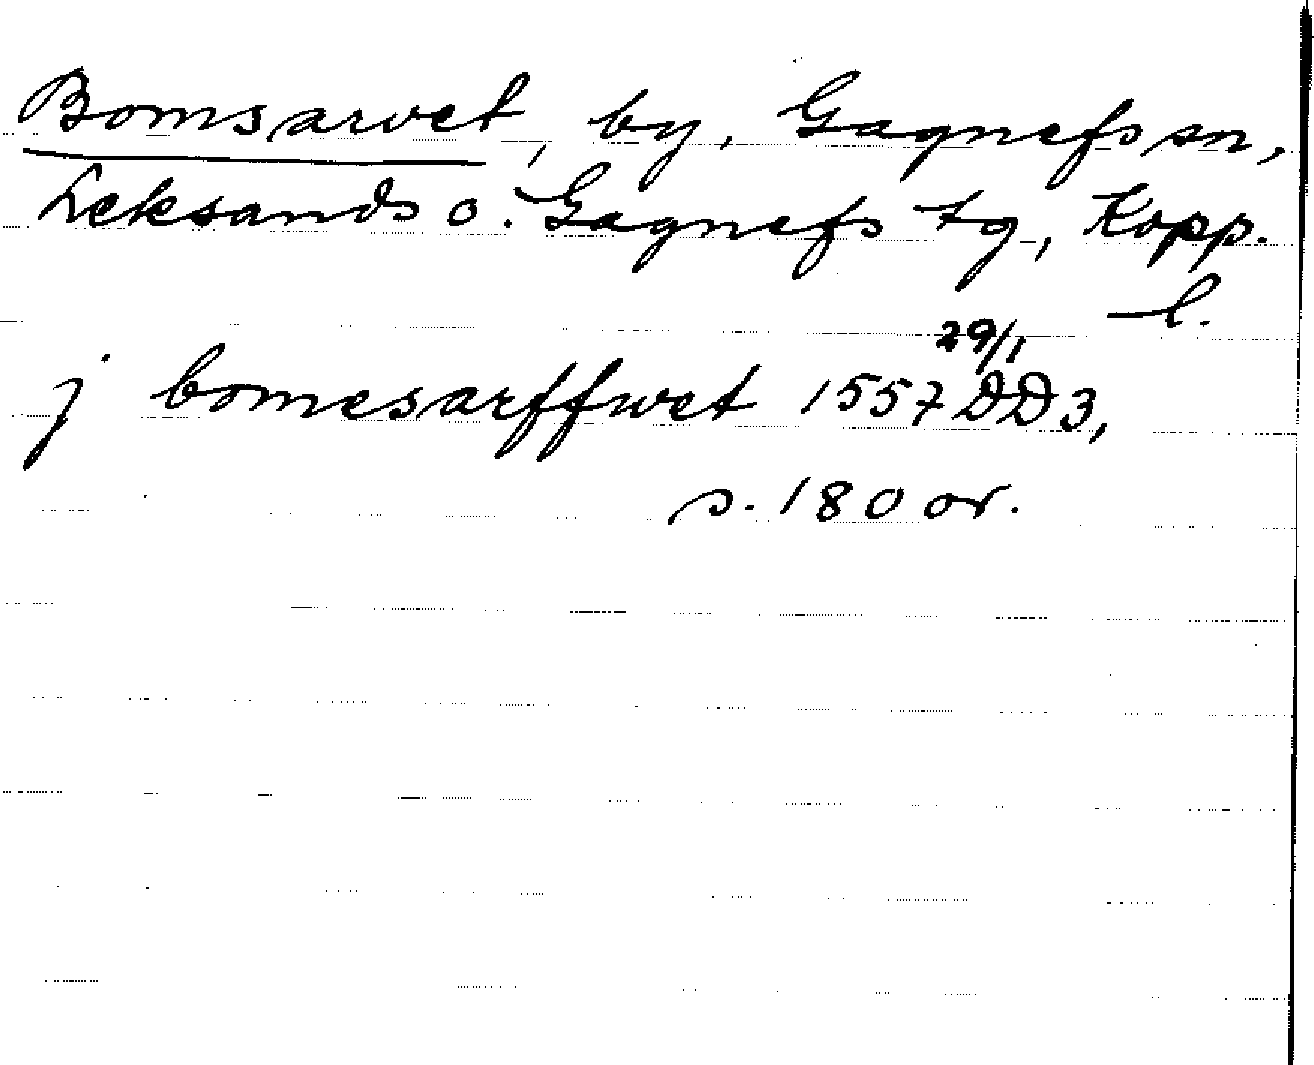 Bomsarvet, by, Gagnefs sn,
Leksands o. Gagnefs tg, Kopp.
l.
j bomesarffwet 1557 29/1 DD 3,
s. 180 or.